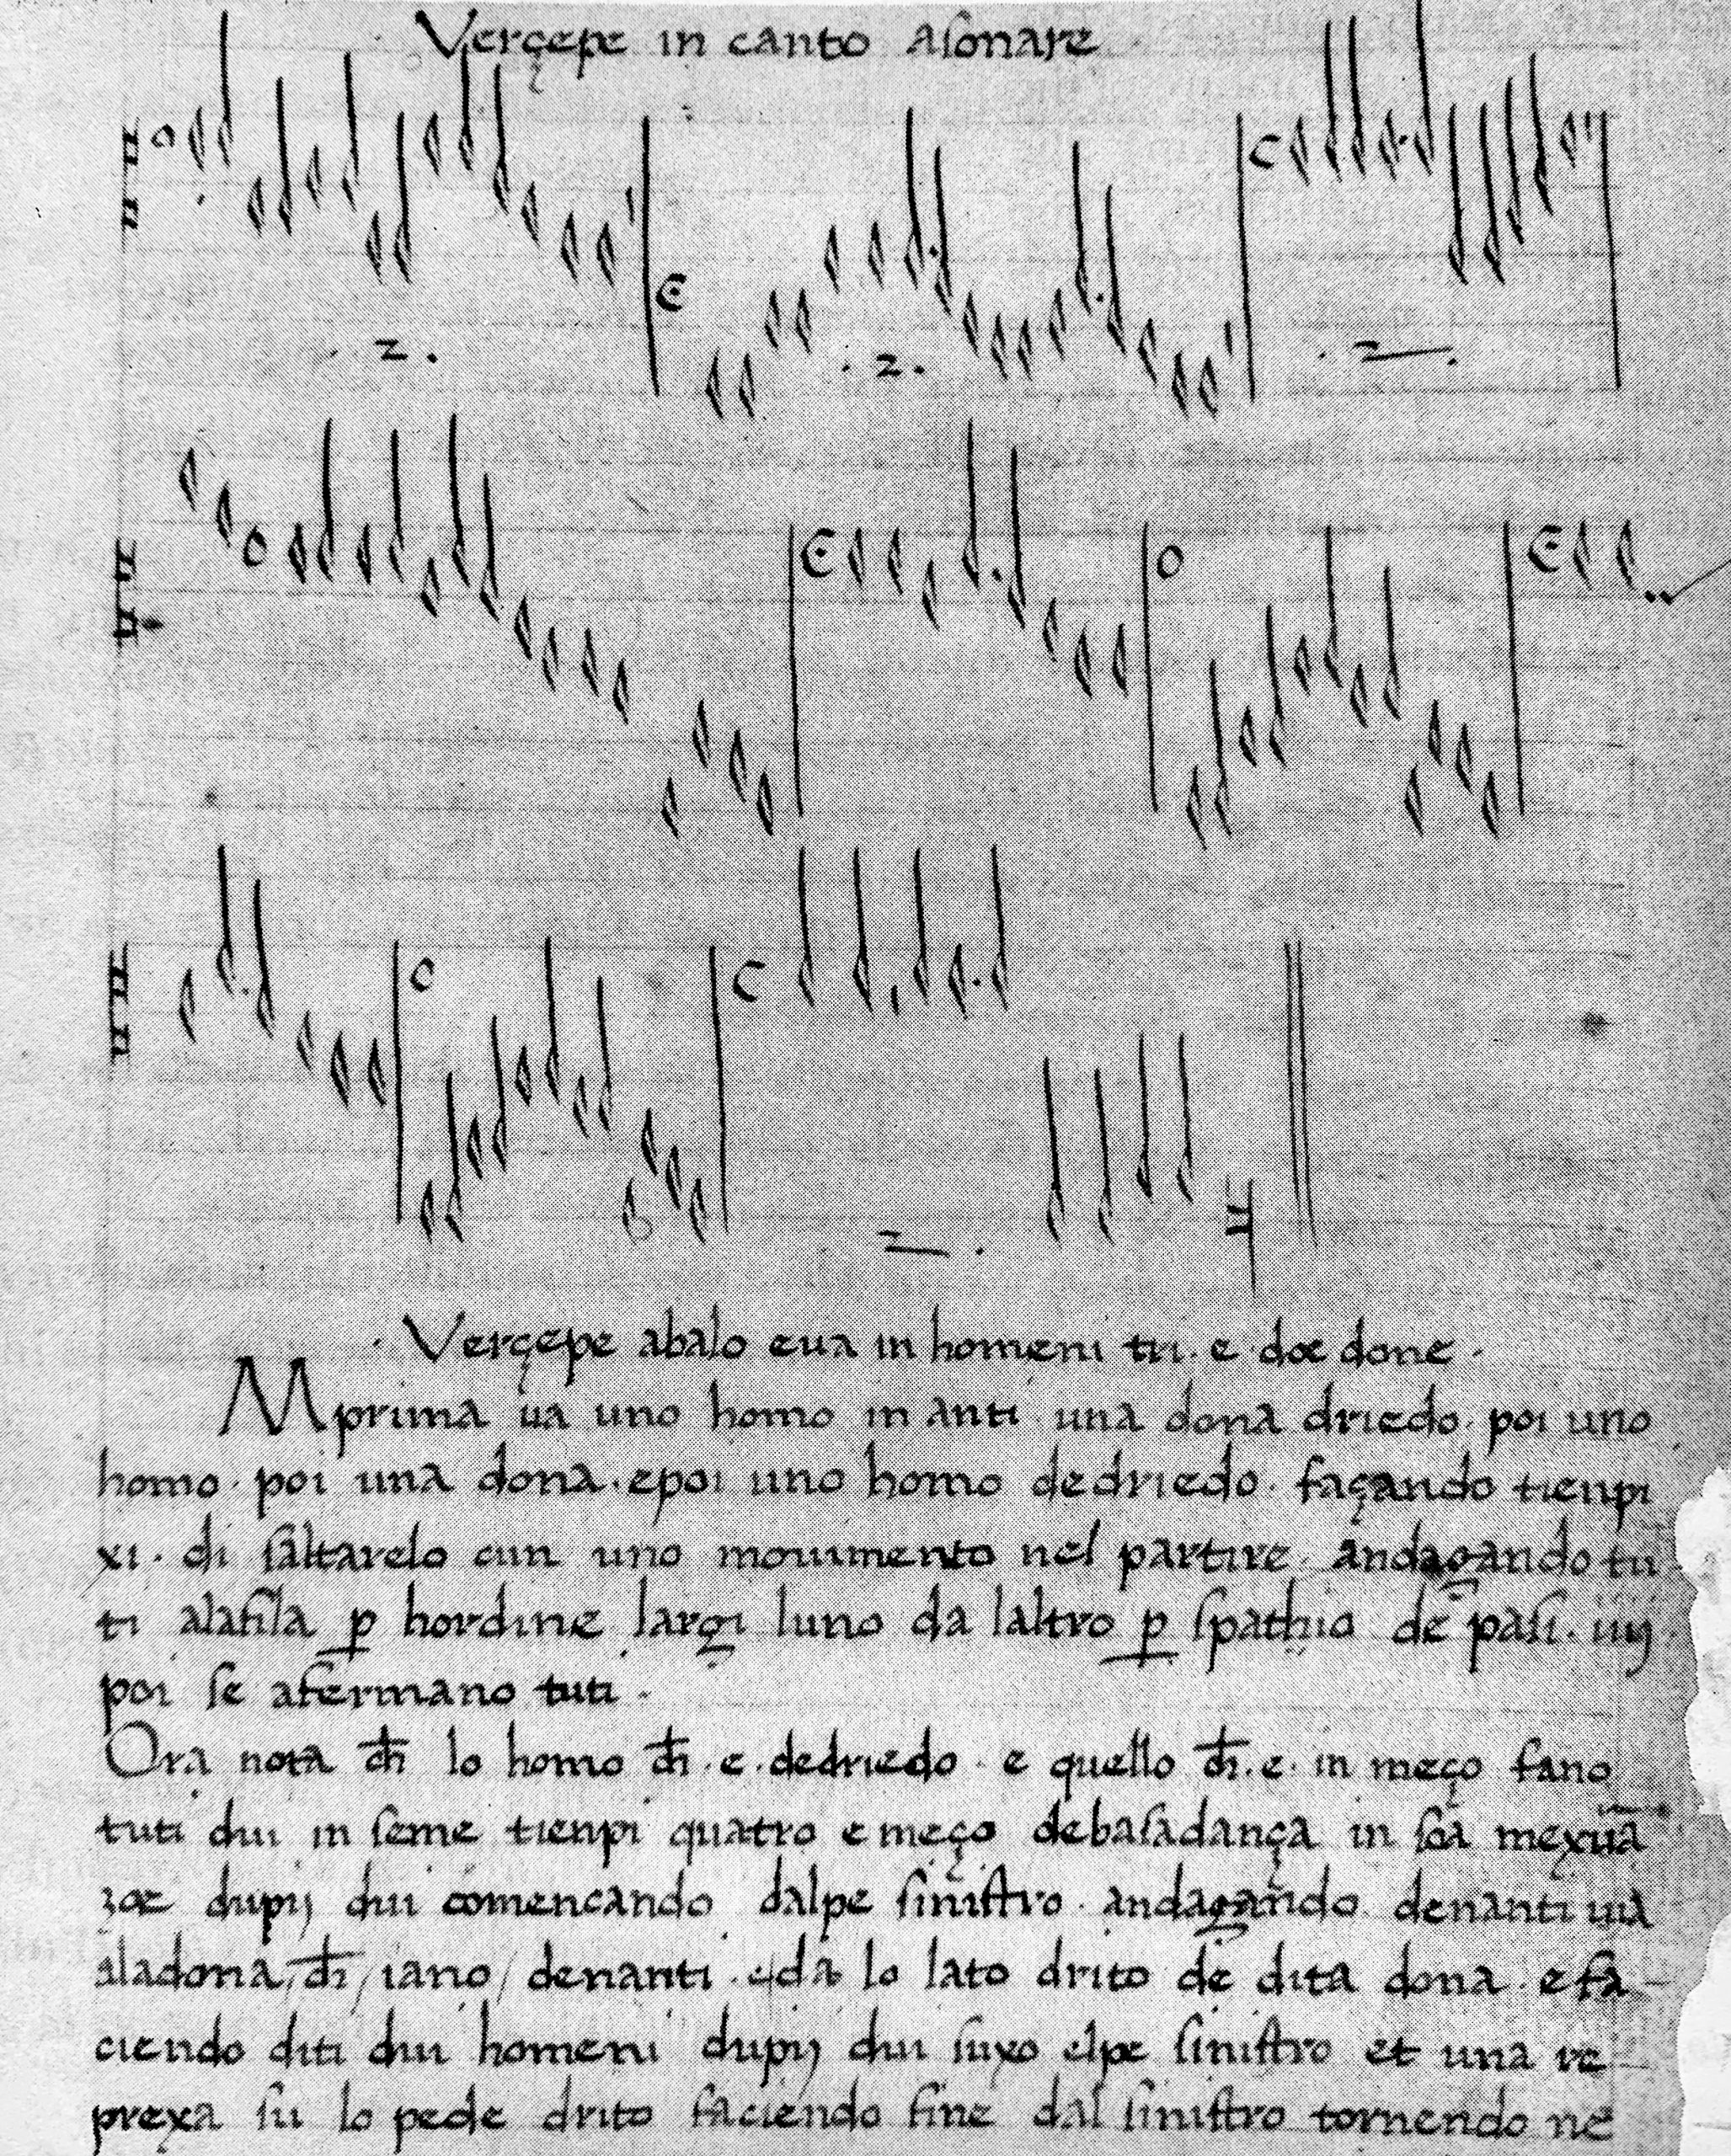 Verçepe in canto asonare
O
.z.
Є
.z.
C
.z.
O
Є
O
Є
C
C
z.
. Verçepe abalo eua in homeni tri . e . doe done .
Mprima ua uno homo in anti una dona driedo . poi uno
homo . poi una dona . epoi uno homo dedriedo . façando tienpi
xi . di saltarelo cun uno mouimento nel partire . andagando tu
ti alafila p hordine largi luno da laltro p spathio de pasi . iiij .
poi se afermano tuti .
Ora nota ch̄ lo homo ch̄ . e . dedriedo . e quello ch̄ . e . in meço fano
tuti dui in seme tienpi quatro e meço debasadança in soa mexura
zoe dupij dui comencando dalpe sinistro . andagando denanti uia
aladona / ch̄ / iano / denanti . e da lo lato drito de dita dona . e fa
ciendo diti dui homeni dupij dui suxo elpe sinistro et una re
prexa su lo pede drito faciendo fine dal sinistro tornendo ne